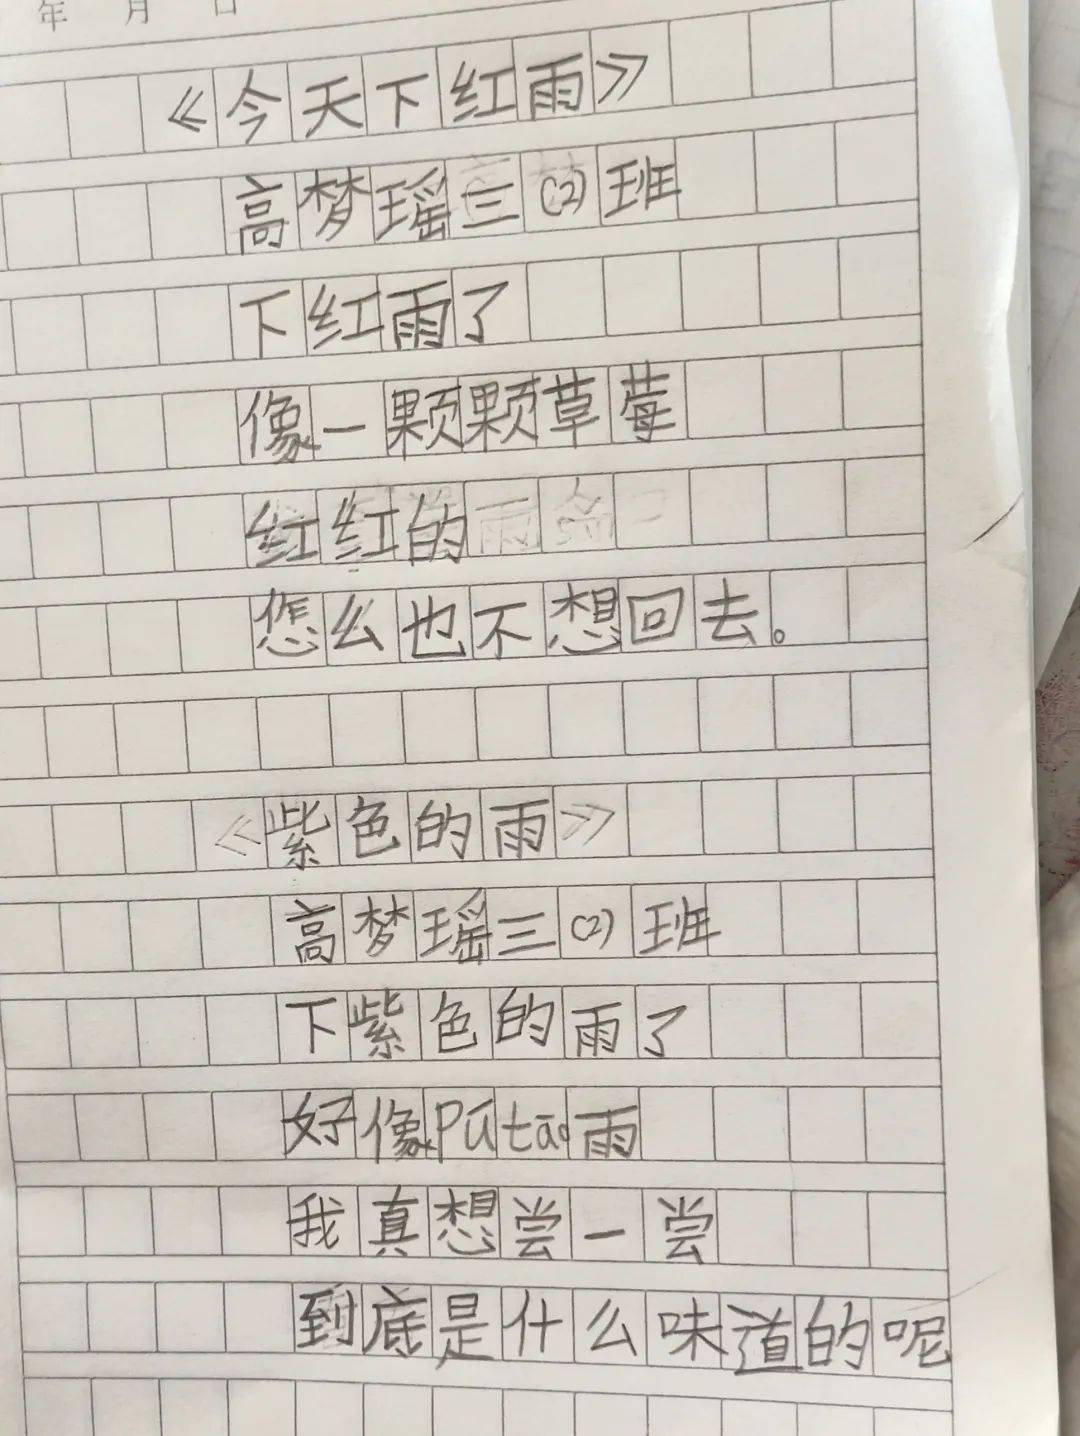 年 月 日
《今天下红雨》
高梦瑶三(2)班
下红雨了
像一颗颗草莓
红红的
怎么也不想回去。
《紫色的雨》
高梦瑶三(2)班
下紫色的雨了
好像pútāo雨
我真想尝一尝
到底是什么味道的呢